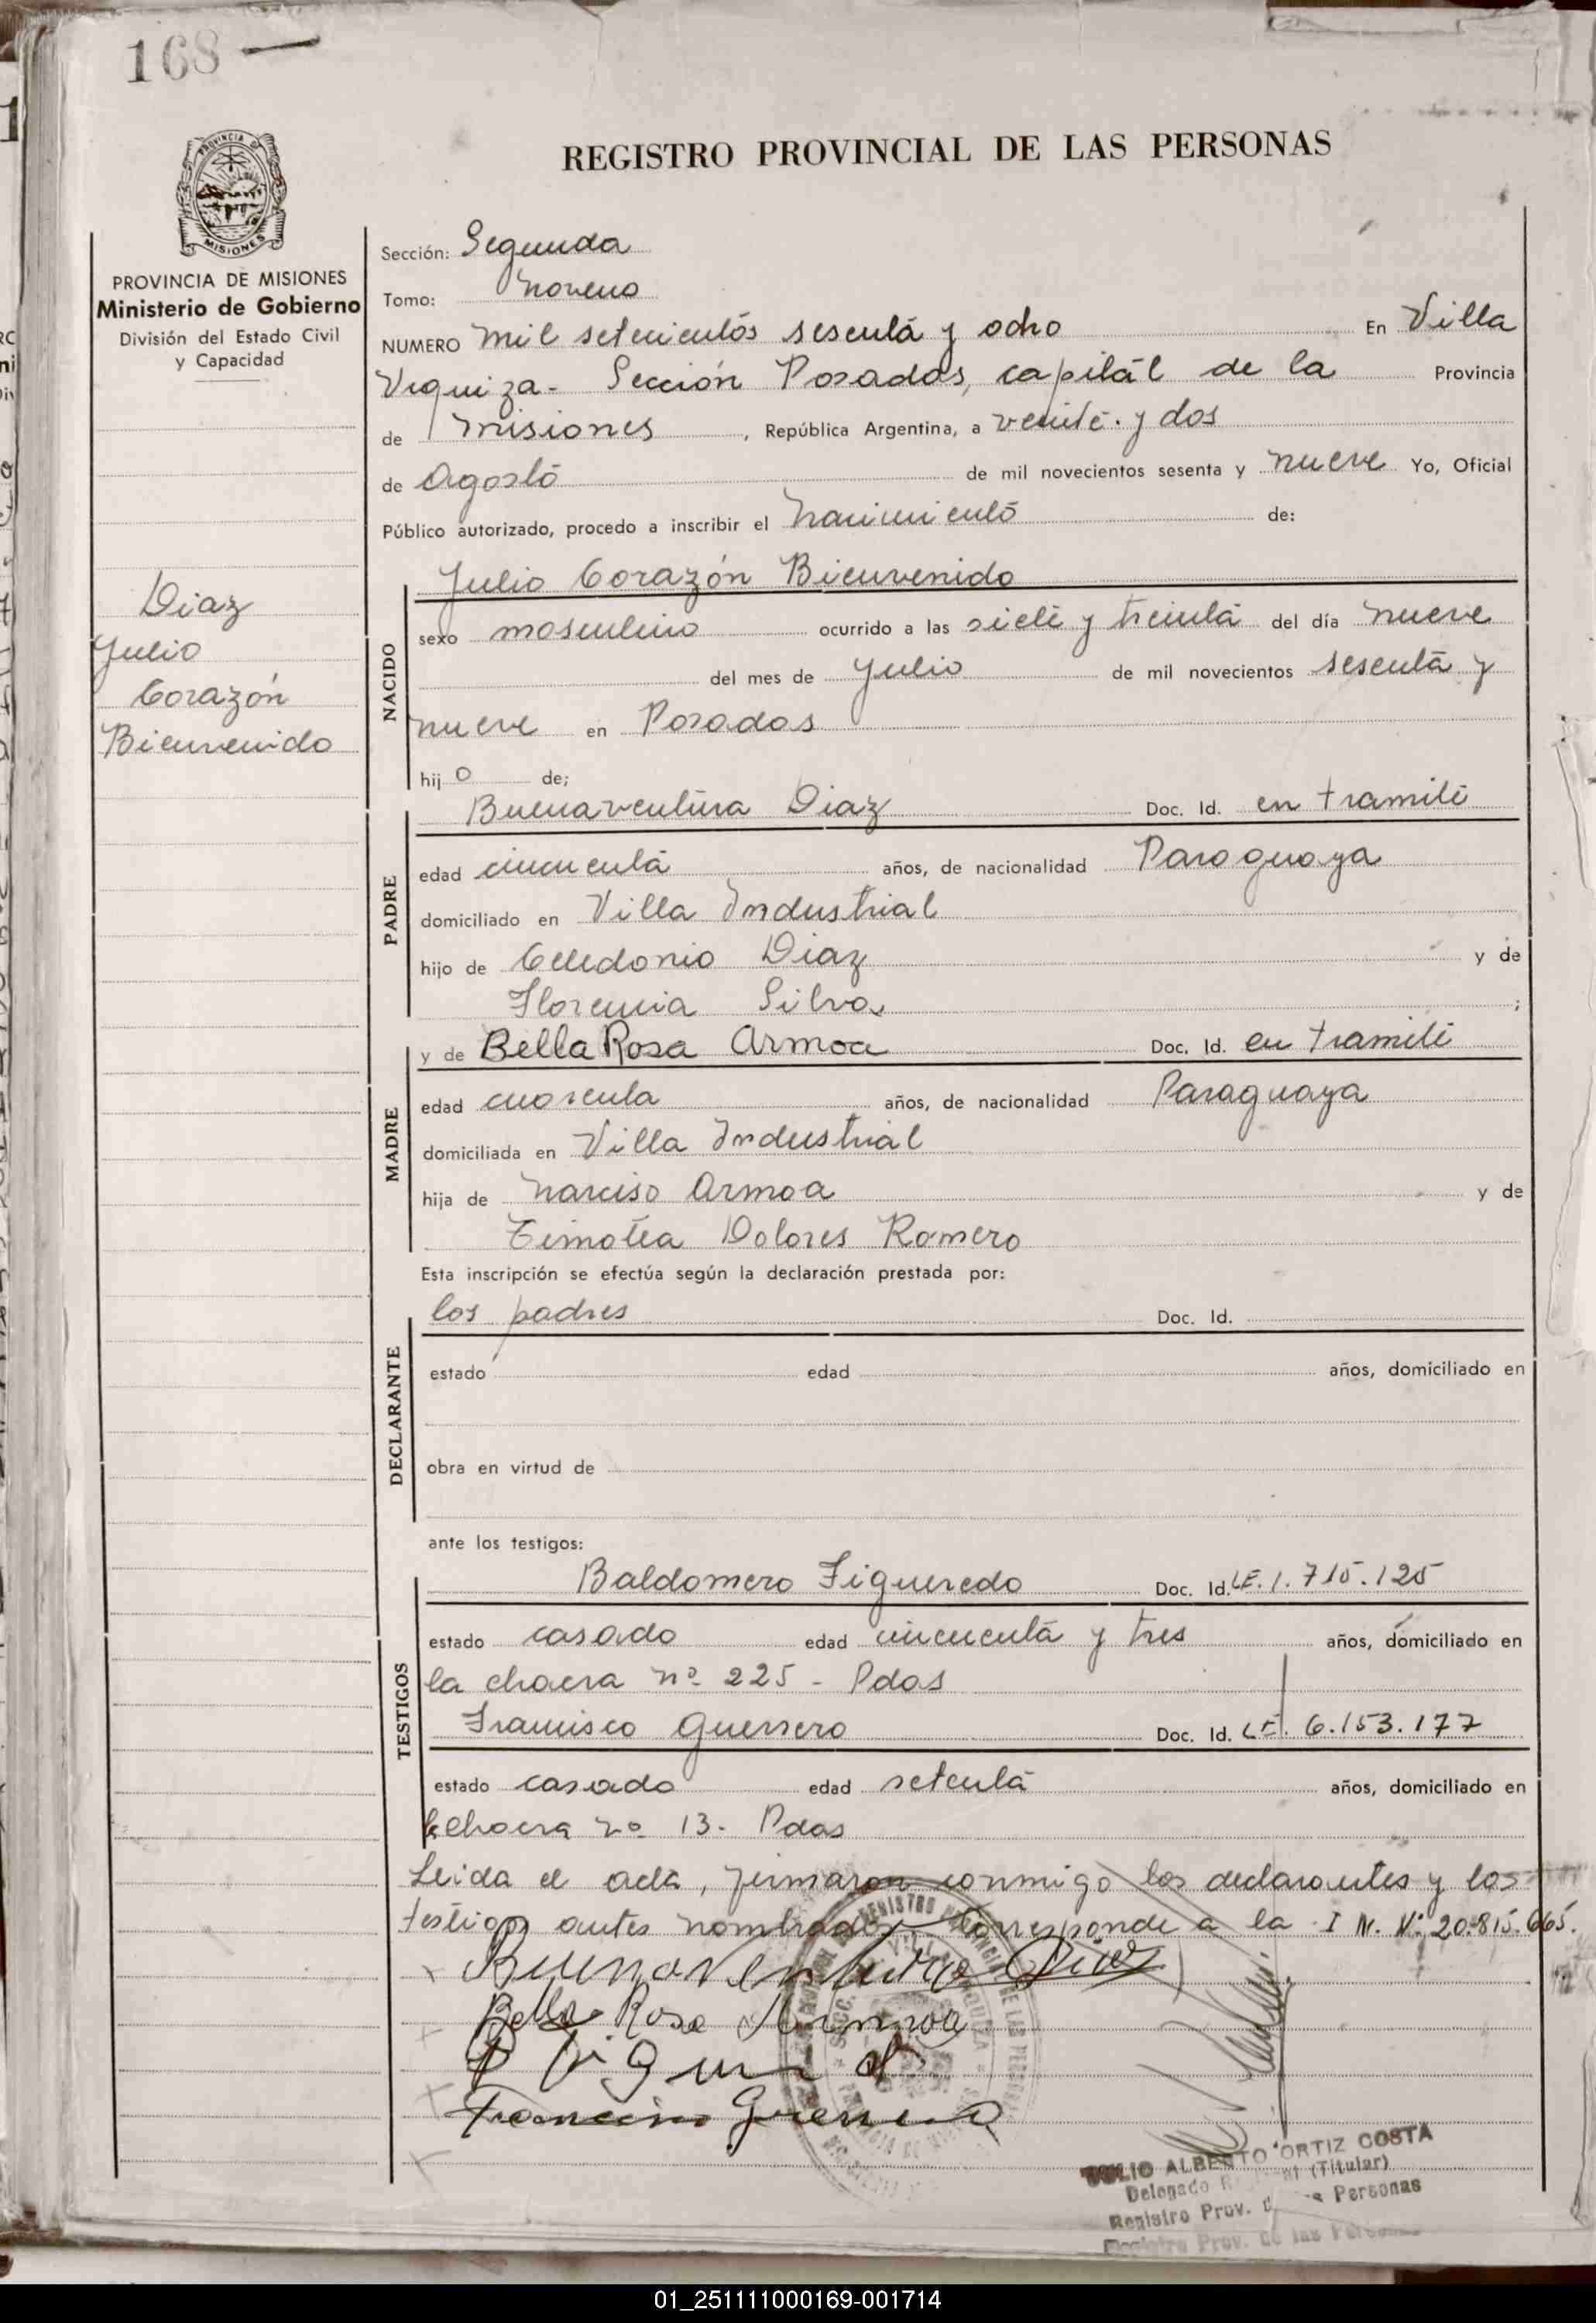 168 —
REGISTRO PROVINCIAL DE LAS PERSONAS
PROVINCIA DE MISIONES
Ministerio de Gobierno
División del Estado Civil
y Capacidad
Diaz
Julio
Corazón
Bienvenido
Sección: Segunda
Tomo: Noveno
NUMERO mil setecientos sesenta y ocho En Villa
Urquiza - Sección Posadas, capital de la Provincia
de Misiones, República Argentina, a veinte y dos
de Agosto de mil novecientos sesenta y nueve Yo, Oficial
Público autorizado, procedo a inscribir el Nacimiento de:
NACIDO
Julio Corazón Bienvenido
sexo masculino ocurrido a las siete y treinta del día nueve
del mes de Julio de mil novecientos sesenta y
nueve en Posadas
hijo de;
PADRE
Buenaventura Diaz Doc. Id. en tramite
edad cincuenta años, de nacionalidad Paraguaya
domiciliado en Villa Industrial
hijo de Celedonio Diaz y de
Florencia Silva ;
MADRE
y de Bella Rosa Armoa Doc. Id. en tramite
edad cuarenta años, de nacionalidad Paraguaya
domiciliada en Villa Industrial
hija de Narciso Armoa y de
Timotea Dolores Romero
Esta inscripción se efectúa según la declaración prestada por:
DECLARANTE
los padres Doc. Id.
estado edad años, domiciliado en
obra en virtud de
ante los testigos:
TESTIGOS
Baldomero Figueredo Doc. Id. LE. 1.715.125
estado casado edad cincuenta y tres años, domiciliado en
la chacra nº 225 - Pdas
Francisco Guerrero Doc. Id. LE. 6.153.177
estado casado edad setenta años, domiciliado en
chacra nº 13 - Pdas
Leida el acta, firmaron conmigo los declarantes y los
testigos antes nombrados Corresponde a la I N. Nº 20.815.665.
Buenaventura Diaz
Bella Rosa Armoa
Francisco Guerrero
JULIO ALBERTO ORTIZ COSTA
Delegado (Titular)
Registro Prov. de las Personas
Registro Prov. de las Personas
01_251111000169-001714